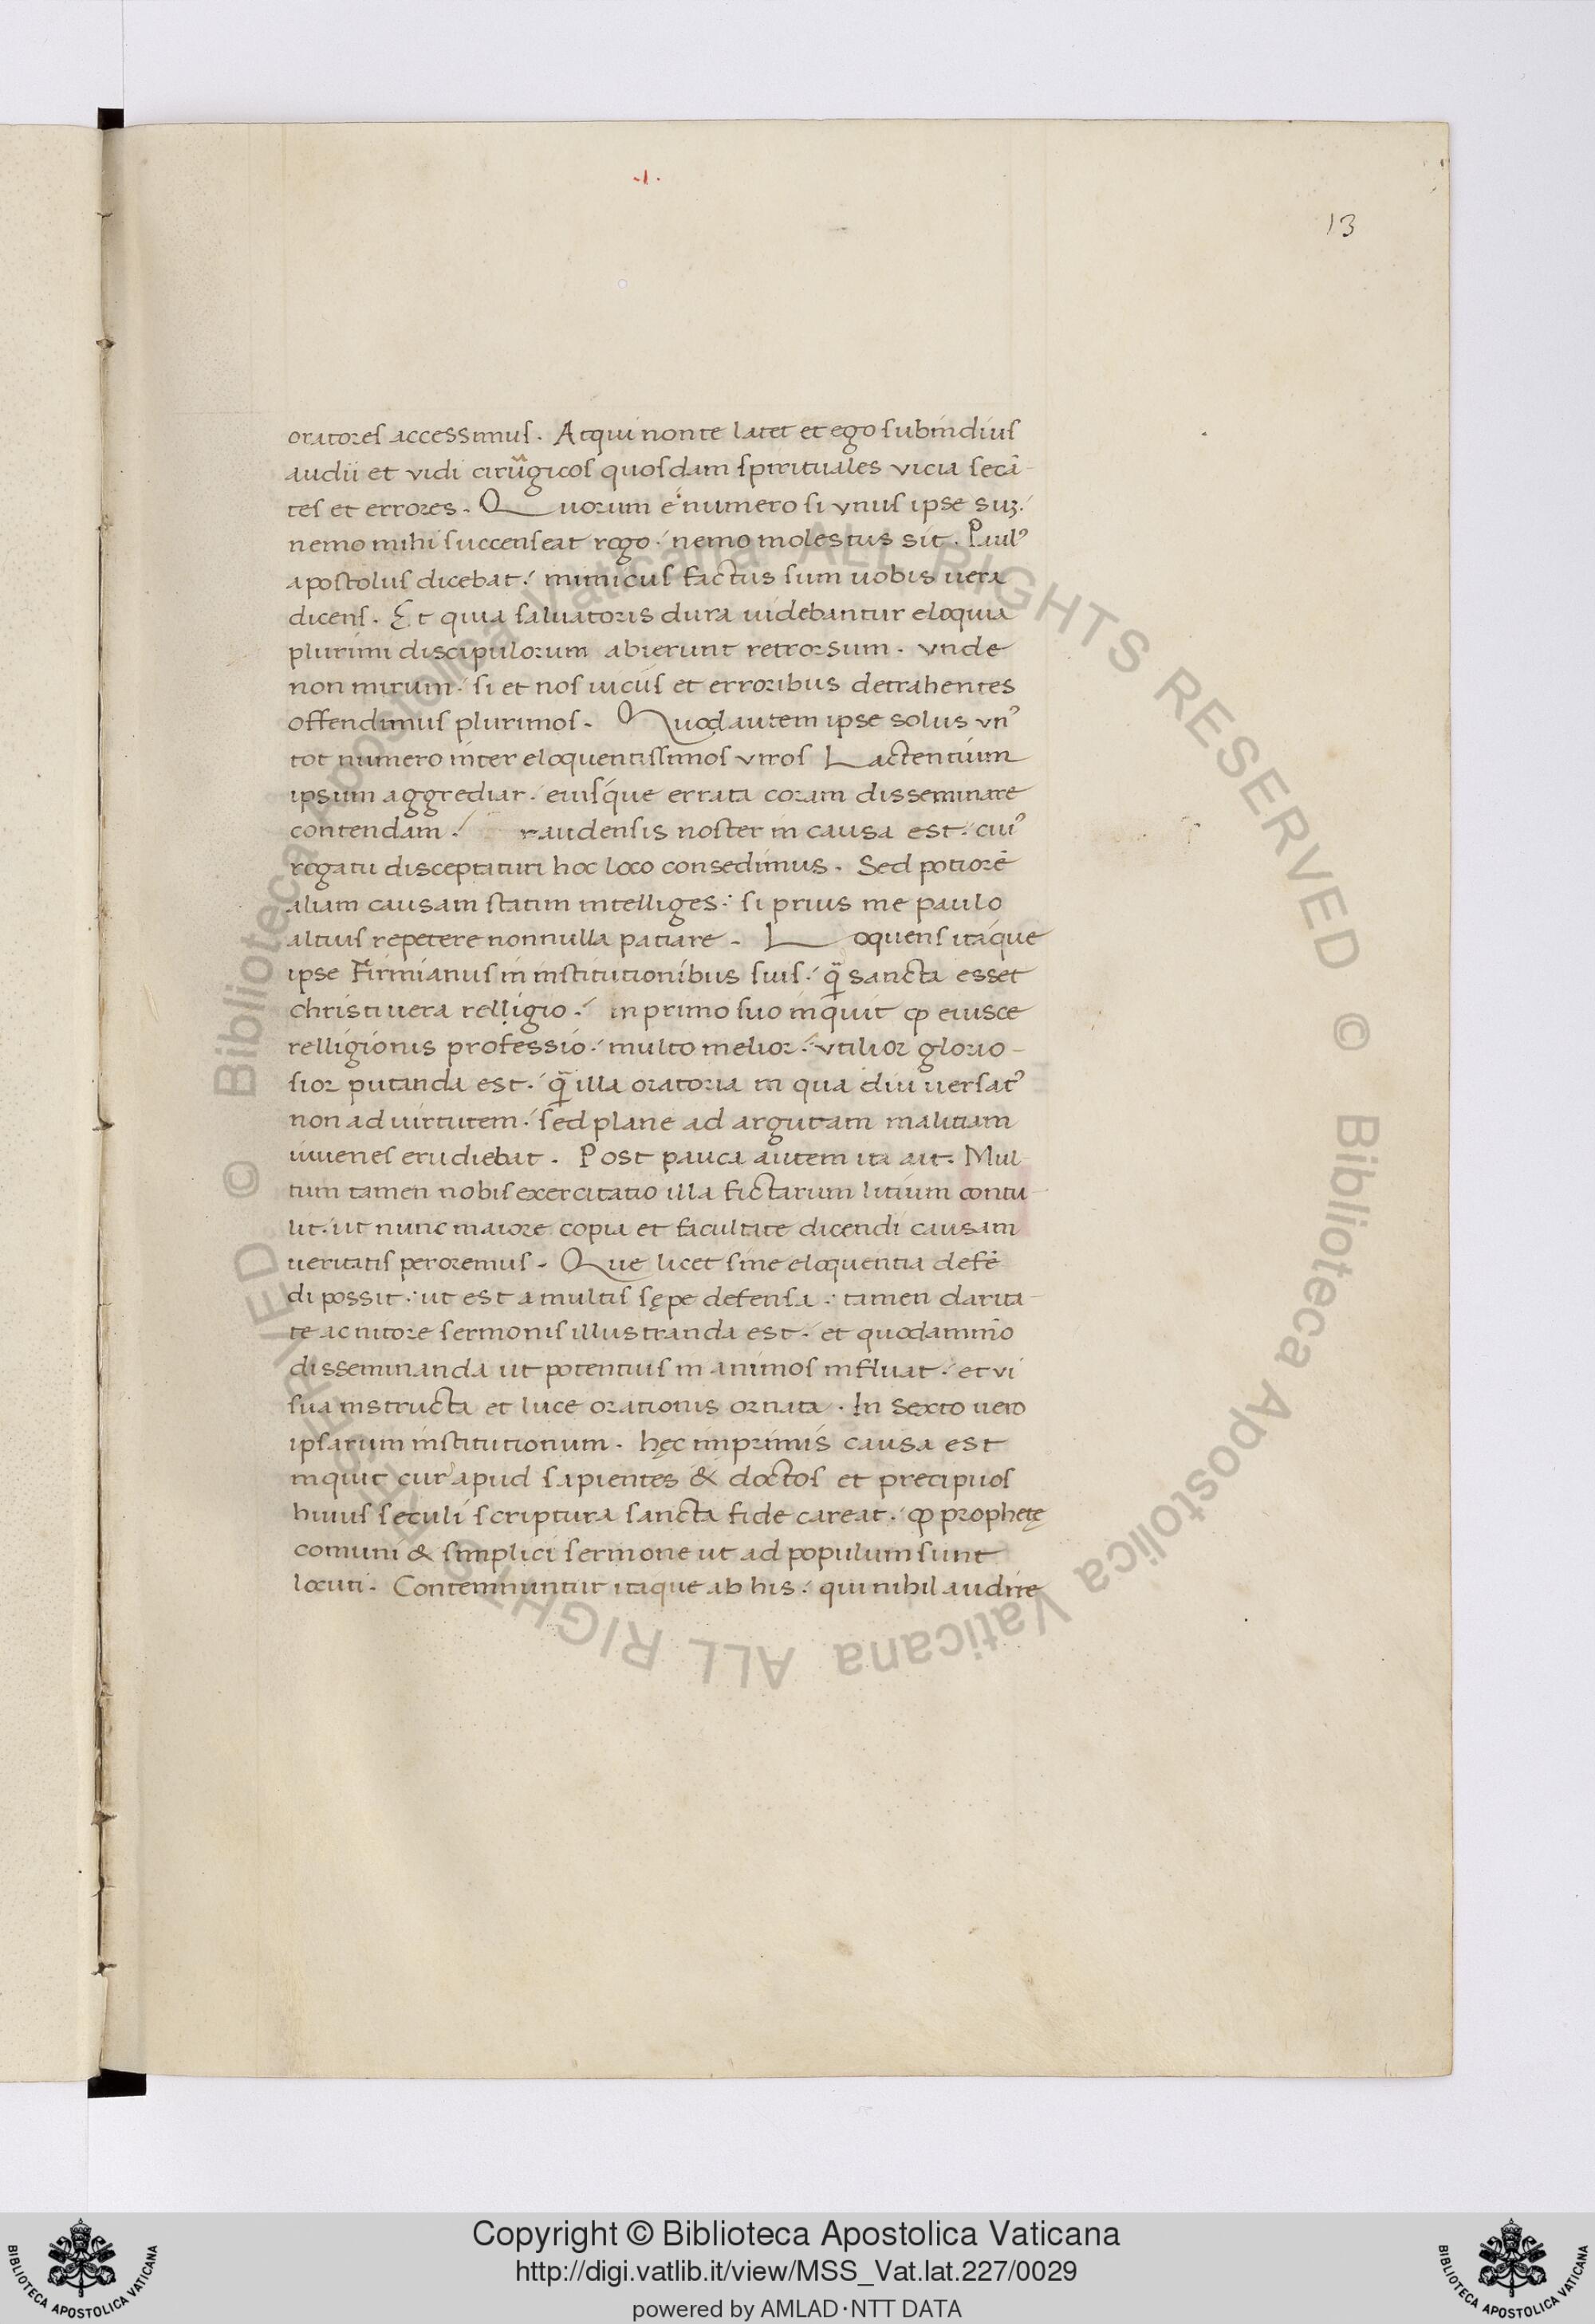 .I.
13
oratores accessimus. Atqui non te latet et ego subindius
audii et vidi cirurgicos quosdam spirituales vicia secā-
tes et errores. Quorum ė numero si vnus ipse suꝫ:
nemo mihi succenseat rogo: nemo molestus sit. Paulꝰ
apostolus dicebat: inimicus factus sum uobis uera
dicens. Et quia saluatoris dura uidebantur eloquia
plurimi discipulorum abierunt retrorsum. vnde
non mirum: si et nos uiciis et erroribus detrahentes
offendimus plurimos. Quod autem ipse solus vnꝰ
tot numero inter eloquentissimos viros Lactentium
ipsum aggrediar: eiusque errata coram disseminare
contendam: raudensis noster in causa est: cuiꝰ
rogatu disceptaturi hoc loco consedimus. Sed potiorē
aliam causam statim intelliges: si prius me paulo
altius repetere nonnulla patiare. Loquens itaque
ipse Firmianus in institutionibus suis: q̄ sancta esset
christi uera relligio: in primo suo inquit ꝙ eiusce
relligionis professio: multo melior: vtilior glorio-
sior putanda est: q̄ illa oratoria in qua diu uersatꝰ
non ad uirtutem: sed plane ad argutam malitiam
iuuenes erudiebat. Post pauca autem ita ait. Mul-
tum tamen nobis exercitatio illa fictarum litium contu-
lit: ut nunc maiore copia et facultate dicendi causam
ueritatis peroremus. Que licet sine eloquentia defē
di possit: ut est a multis sępe defensa: tamen clarita-
te ac nitore sermonis illustranda est: et quodammō
disseminanda ut potentius in animos influat: et vi
sua instructa et luce orationis ornata. In sexto uero
ipsarum institutionum. hęc imprimis causa est
inquit cur apud sapientes & doctos et precipuos
huius seculi scriptura sancta fide careat: ꝙ prophetę
comuni & simplici sermone ut ad populum sunt
locuti. Contemnuntur itaque ab his: qui nihil audire
Copyright © Biblioteca Apostolica Vaticana
http://digi.vatlib.it/view/MSS_Vat.lat.227/0029
powered by AMLAD·NTT DATA
BIBLIOTECA APOSTOLICA VATICANA
BIBLIOTECA APOSTOLICA VATICANA
© Biblioteca Apostolica Vaticana ALL RIGHTS RESERVED
© Biblioteca Apostolica Vaticana ALL RIGHTS RESERVED